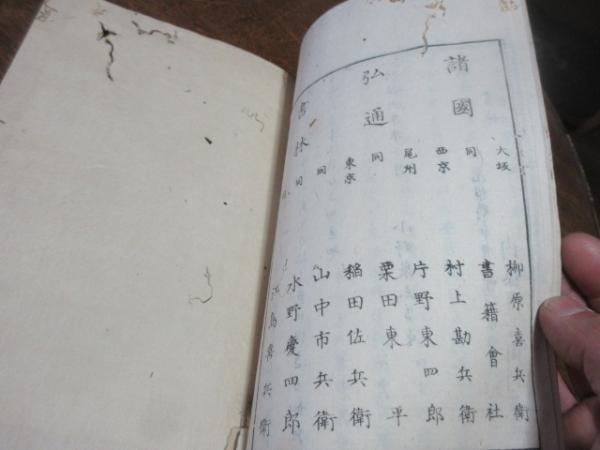 諸國
弘通
書林
大坂 柳原喜兵衛
同 書籍會社
西京 村上勘兵衛
尾州 片野東四郎
同 栗田東平
東京 稲田佐兵衛
同 山中市兵衛
同 水野慶四郎
兵衛